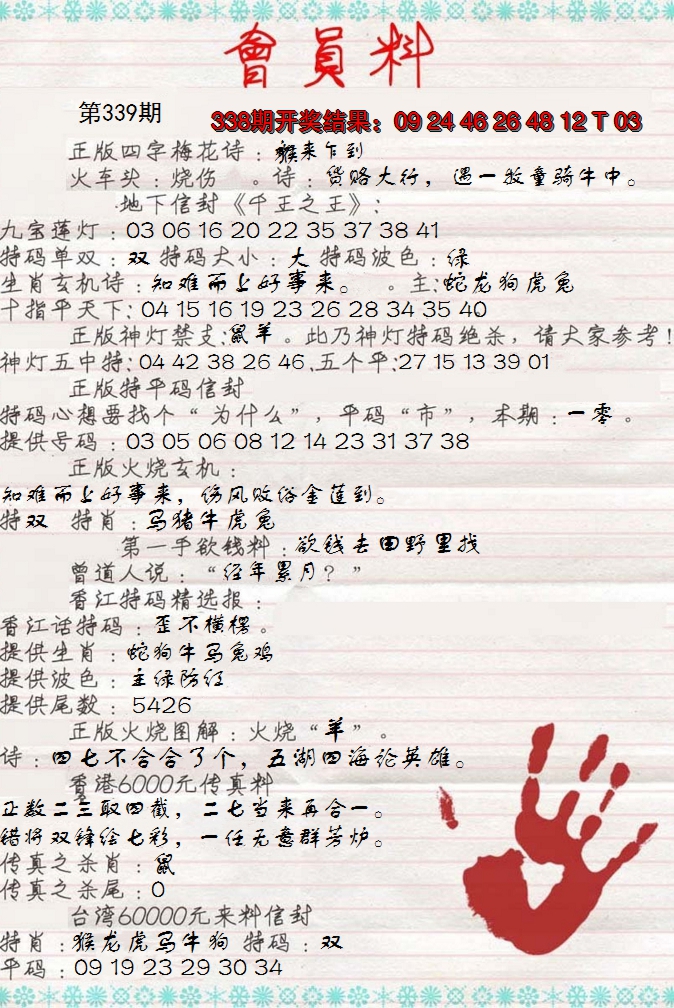 會員料
第339期
338期开奖结果：09 24 46 26 48 12 T 03
正版四字梅花诗：猴来乍到
火车头：烧伤 。诗：货赂大行，遇一牧童骑牛中。
地下信封《千王之王》：
九宝莲灯：03 06 16 20 22 35 37 38 41
特码单双：双 特码大小：大 特码波色：绿
生肖玄机诗：知难而上好事来。 。主：蛇龙狗虎兔
十指平天下：04 15 16 19 23 26 28 34 35 40
正版神灯禁支：鼠羊。此乃神灯特码绝杀，请大家参考！
神灯五中特：04 42 38 26 46.五个平：27 15 13 39 01
正版特平码信封
特码心想要找个“为什么”，平码“市”，本期：一零。
提供号码：03 05 06 08 12 14 23 31 37 38
正版火烧玄机：
知难而上好事来，伤风败俗金莲到。
特双 特肖：马猪牛虎兔
第一手欲钱料：欲钱去田野里找
曾道人说：“经年累月？”
香江特码精选报：
香江话特码：歪不横楞。
提供生肖：蛇狗牛马兔鸡
提供波色：主绿防红
提供尾数：5426
正版火烧图解：火烧“羊”。
诗：四七不合合了个，五湖四海论英雄。
香港6000元传真料
正数二三取四截，二七当来再合一。
错将双锋绘七彩，一任无意群芳炉。
传真之杀肖：鼠
传真之杀尾：0
台湾60000元来料信封
特肖：猴龙虎马牛狗 特码：双
平码：09 19 23 29 30 34